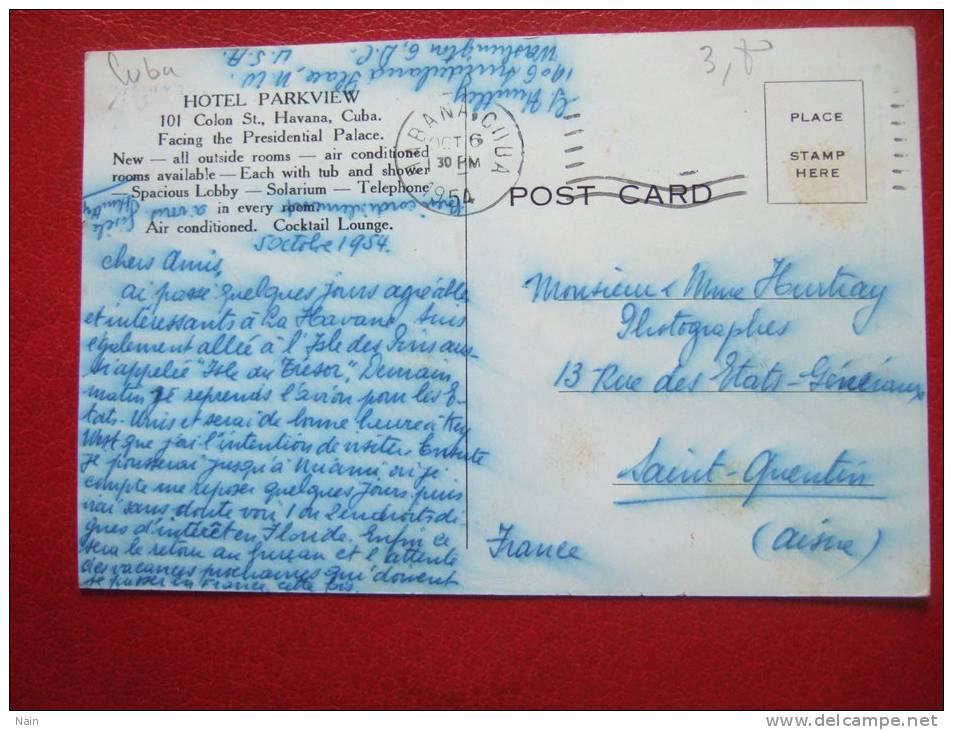 Cuba
3,8
Washington 6, D.C.
U.S.A.
HOTEL PARKVIEW
101 Colon St., Havana, Cuba.
Facing the Presidential Palace.
New — all outside rooms — air conditioned
rooms available — Each with tub and shower
— Spacious Lobby — Solarium — Telephone
in every room.
Air conditioned. Cocktail Lounge.
HABANA, CUBA
OCT 6
30 PM
1954
PLACE
STAMP
HERE
POST CARD
5 Octobre 1954.
Chers Amis,
ai passé quelques jours agréables
et intéressants à La Havane. Suis
également allée à l'Isle des Pins aus-
si appelée "Isle au Trésor". Demain
matin je reprends l'avion pour les E-
tats-Unis et serai de bonne heure à Key
West que j'ai l'intention de visiter. Ensuite
je pousserai jusqu'à Miami où je
compte me reposer quelques jours puis
irai sans doute voir 1 ou 2 endroits di-
gnes d'intérêt en Floride. Enfin ce
sera le retour au bureau et l'attente
des vacances prochaines qui doivent
se passer en France cette fois.
Bien cordialement
à vous
Monsieur & Mme Hurtray
Photographes
13 Rue des Etats-Généraux
Saint-Quentin
(Aisne)
France
Nain
www.delcampe.net